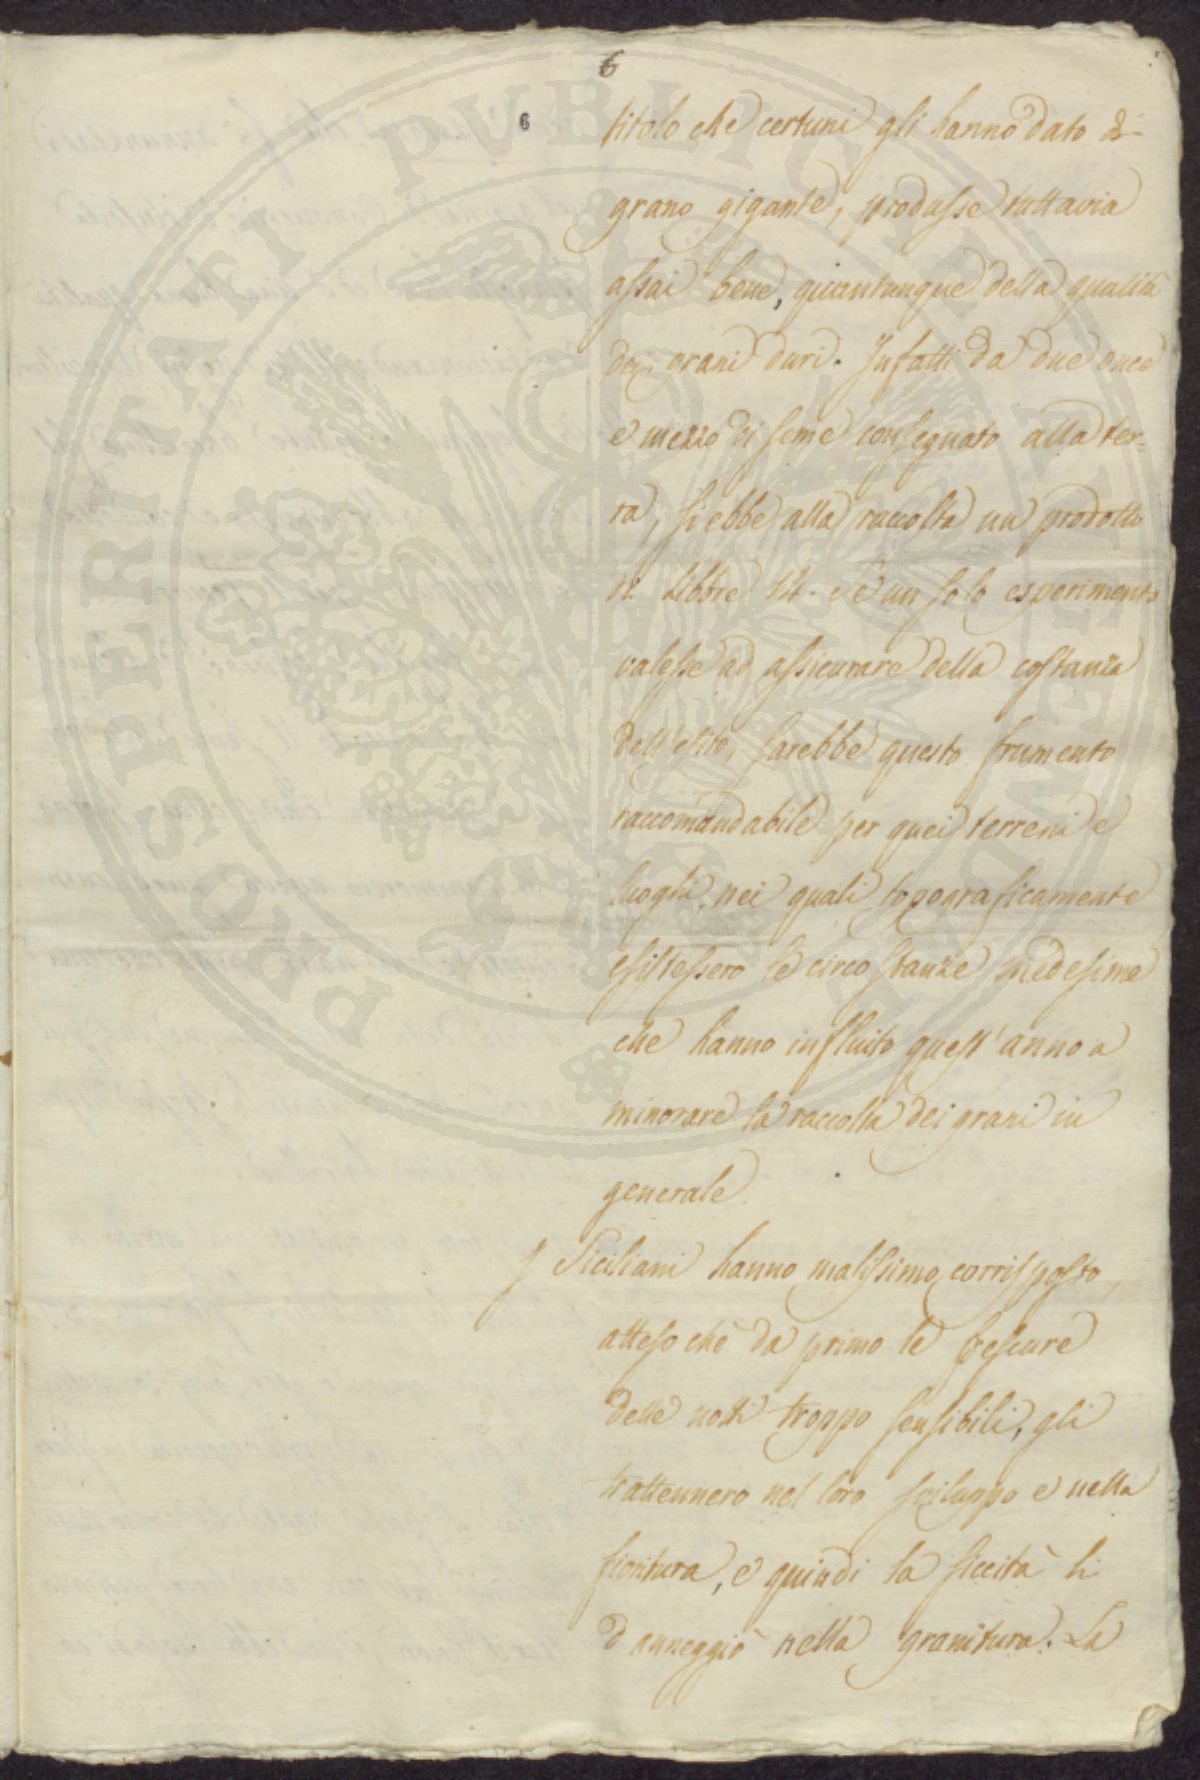 6
6
titolo che certuni gli hanno dato di
grano gigante, produsse tuttavia
assai bene, quantunque della qualità
dei grani duri. Infatti da due once
e mezzo di seme consegnato alla ter-
ra, si ebbe alla raccolta un prodotto
di Libbre 14. Se un solo esperimento
valesse ad assicurare della costanza
dell'esito, sarebbe questo frumento
raccomandabile per quei terreni e
luoghi, nei quali topograficamente
esistessero le circostanze medesime
che hanno influito quest'anno a
minorare la raccolta dei grani in
generale.
I Siciliani hanno malissimo corrisposto,
atteso chè da primo le frescure
delle notti troppo sensibili, gli
trattennero nel loro sviluppo e nella
fioritura, e quindi la siccità li
danneggiò nella granitura. La
PROSPERITATI PUBLICAE AUGENDAE